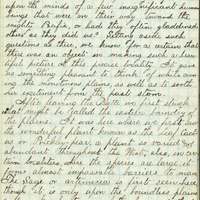 upon the minds of a few insignificant human
beings that were on their way toward the
mighty Pacific as had they often gladdened
others as they did us? Setting aside such
questions as these, we know for a certain that
there was an object in making such a beau-
tiful picture at this precise locality. It gave
us something pleasant to think of while cross-
ing the monotonous plains, as well as to sooth
her excitement from the past storm.
After leaving the Platte we first struck
what might be called the eastern boundary of
the It was here where we first met
the wonderful plant known as the leaf Cact-
us or Prickly pear, a plant so varied and
abundant throughout the West, also, in cer-
tain localities where the species are large it
forms almost impassable barriers to man
Sage or artemisia is first seen here
though it is only upon the boundless plains